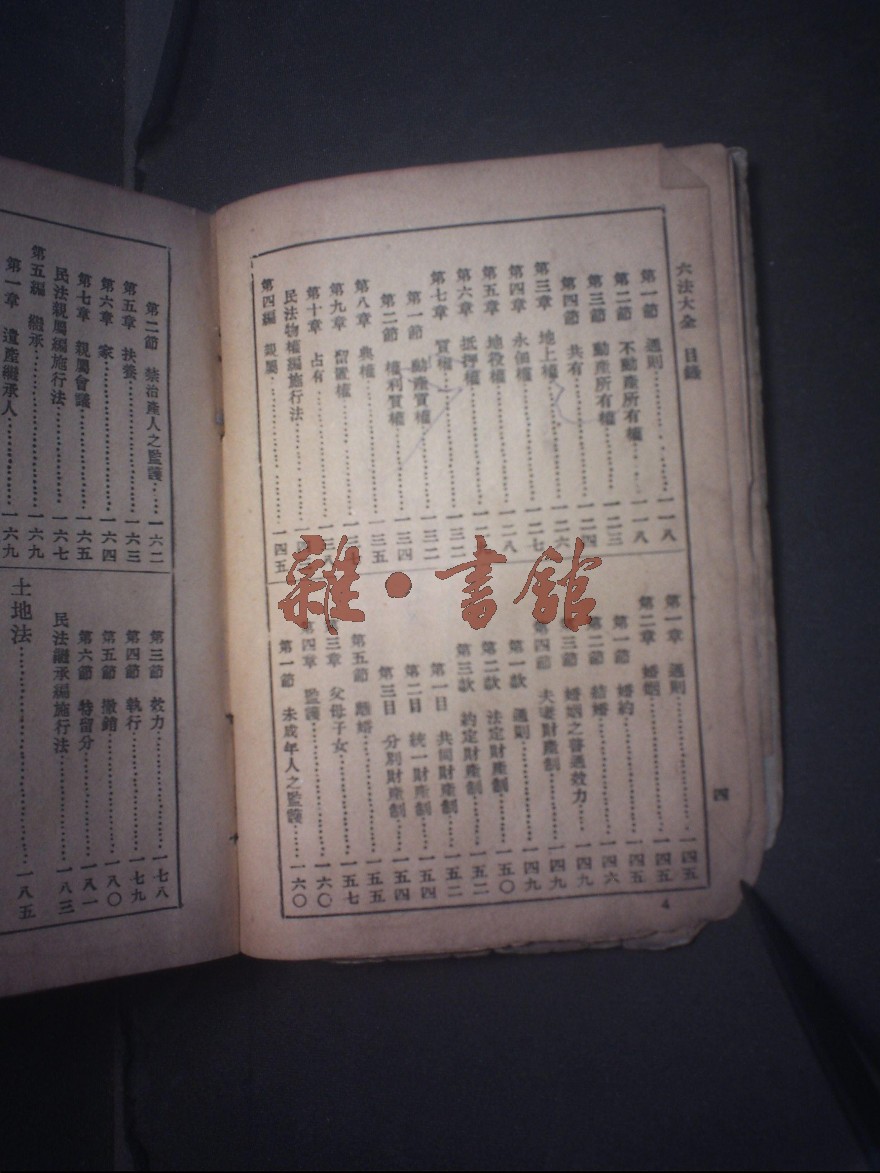 六法大全 目錄
第一節 通則 一一八
第二節 不動產所有權 一一八
第三節 動產所有權 一二三
第四節 共有 一二四
第三章 地上權 一二六
第四章 永佃權 一二七
第五章 地役權 一二八
第六章 抵押權
第七章 質權 一三二
第一節 動產質權 一三二
第二節 權利質權 一三四
第八章 典權 一三五
第九章 留置權
第十章 占有 一三八
民法物權編施行法
第四編 親屬 一四五
第一章 通則 一四五
第二章 婚姻 一四五
第一節 婚約 一四五
第二節 結婚 一四六
第三節 婚姻之普通效力 一四九
第四節 夫妻財產制 一四九
第一款 通則 一四九
第二款 法定財產制 一五〇
第三款 約定財產制 一五二
第一目 共同財產制 一五二
第二目 統一財產制 一五四
第三目 分別財產制 一五四
第五節 離婚 一五五
第三章 父母子女 一五七
第四章 監護 一六〇
第一節 未成年人之監護 一六〇
四
4
第二節 禁治產人之監護 一六二
第五章 扶養 一六三
第六章 家 一六四
第七章 親屬會議 一六五
民法親屬編施行法 一六七
第五編 繼承 一六九
第一章 遺產繼承人 一六九
第三節 效力 一七八
第四節 執行 一七九
第五節 撤銷 一八〇
第六節 特留分 一八一
民法繼承編施行法 一八三
土地法 一八五
雜·書館